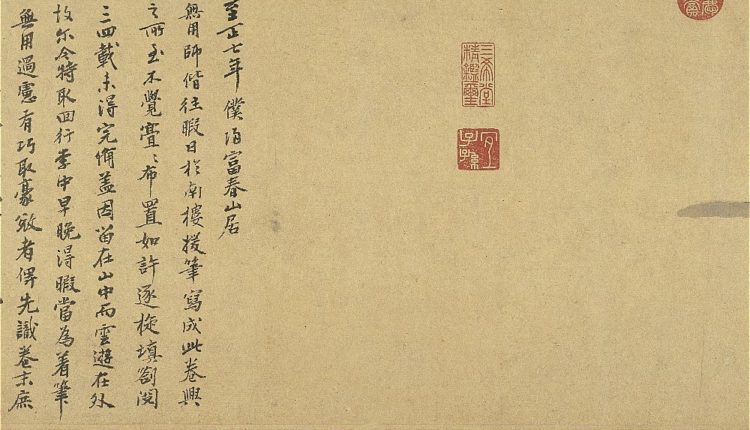 至正七年僕歸富春山居
無用師偕往暇日於南樓援筆寫成此卷興
之所至不覺亹〻布置如許逐旋填劄閱
三四載未得完備盖因留在山中而雲遊在外
故尔今特取回行李中早晚得暇當為着筆
無用過慮有巧取豪敚者俾先識卷末庶
三希堂精鑑璽
宜子孫